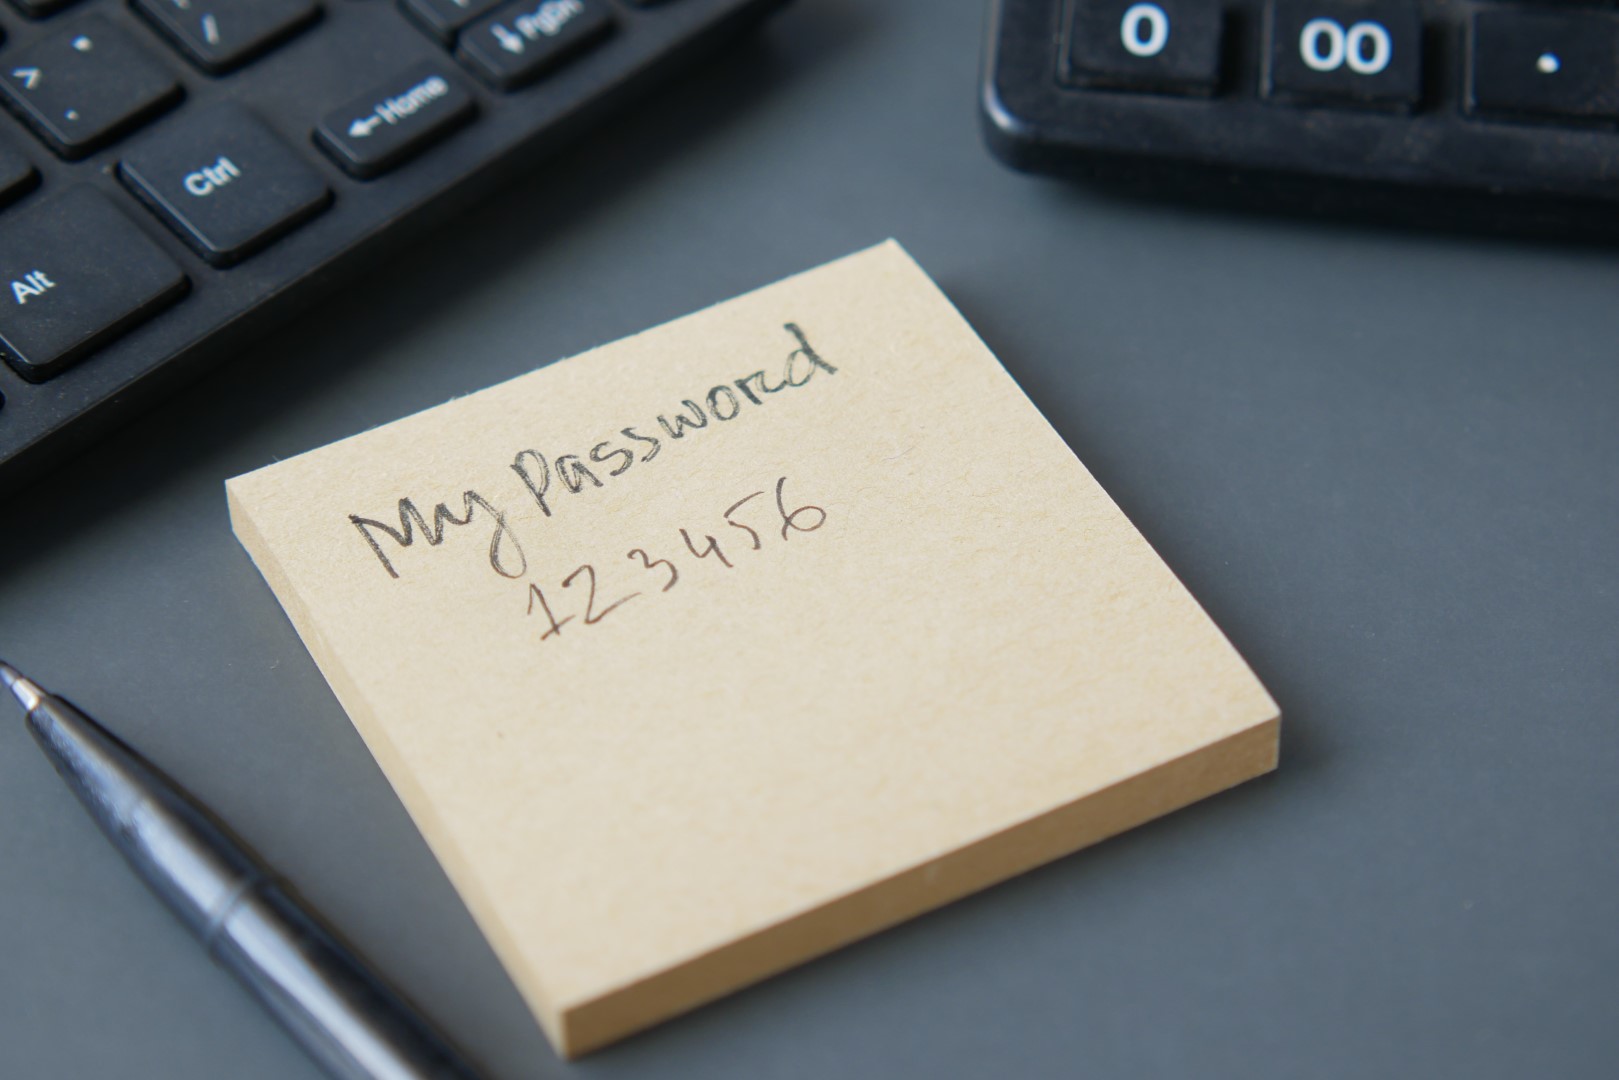 > .
/
↓ PgDn
←Home
Ctrl
Alt
0 00 .
My Password
123456